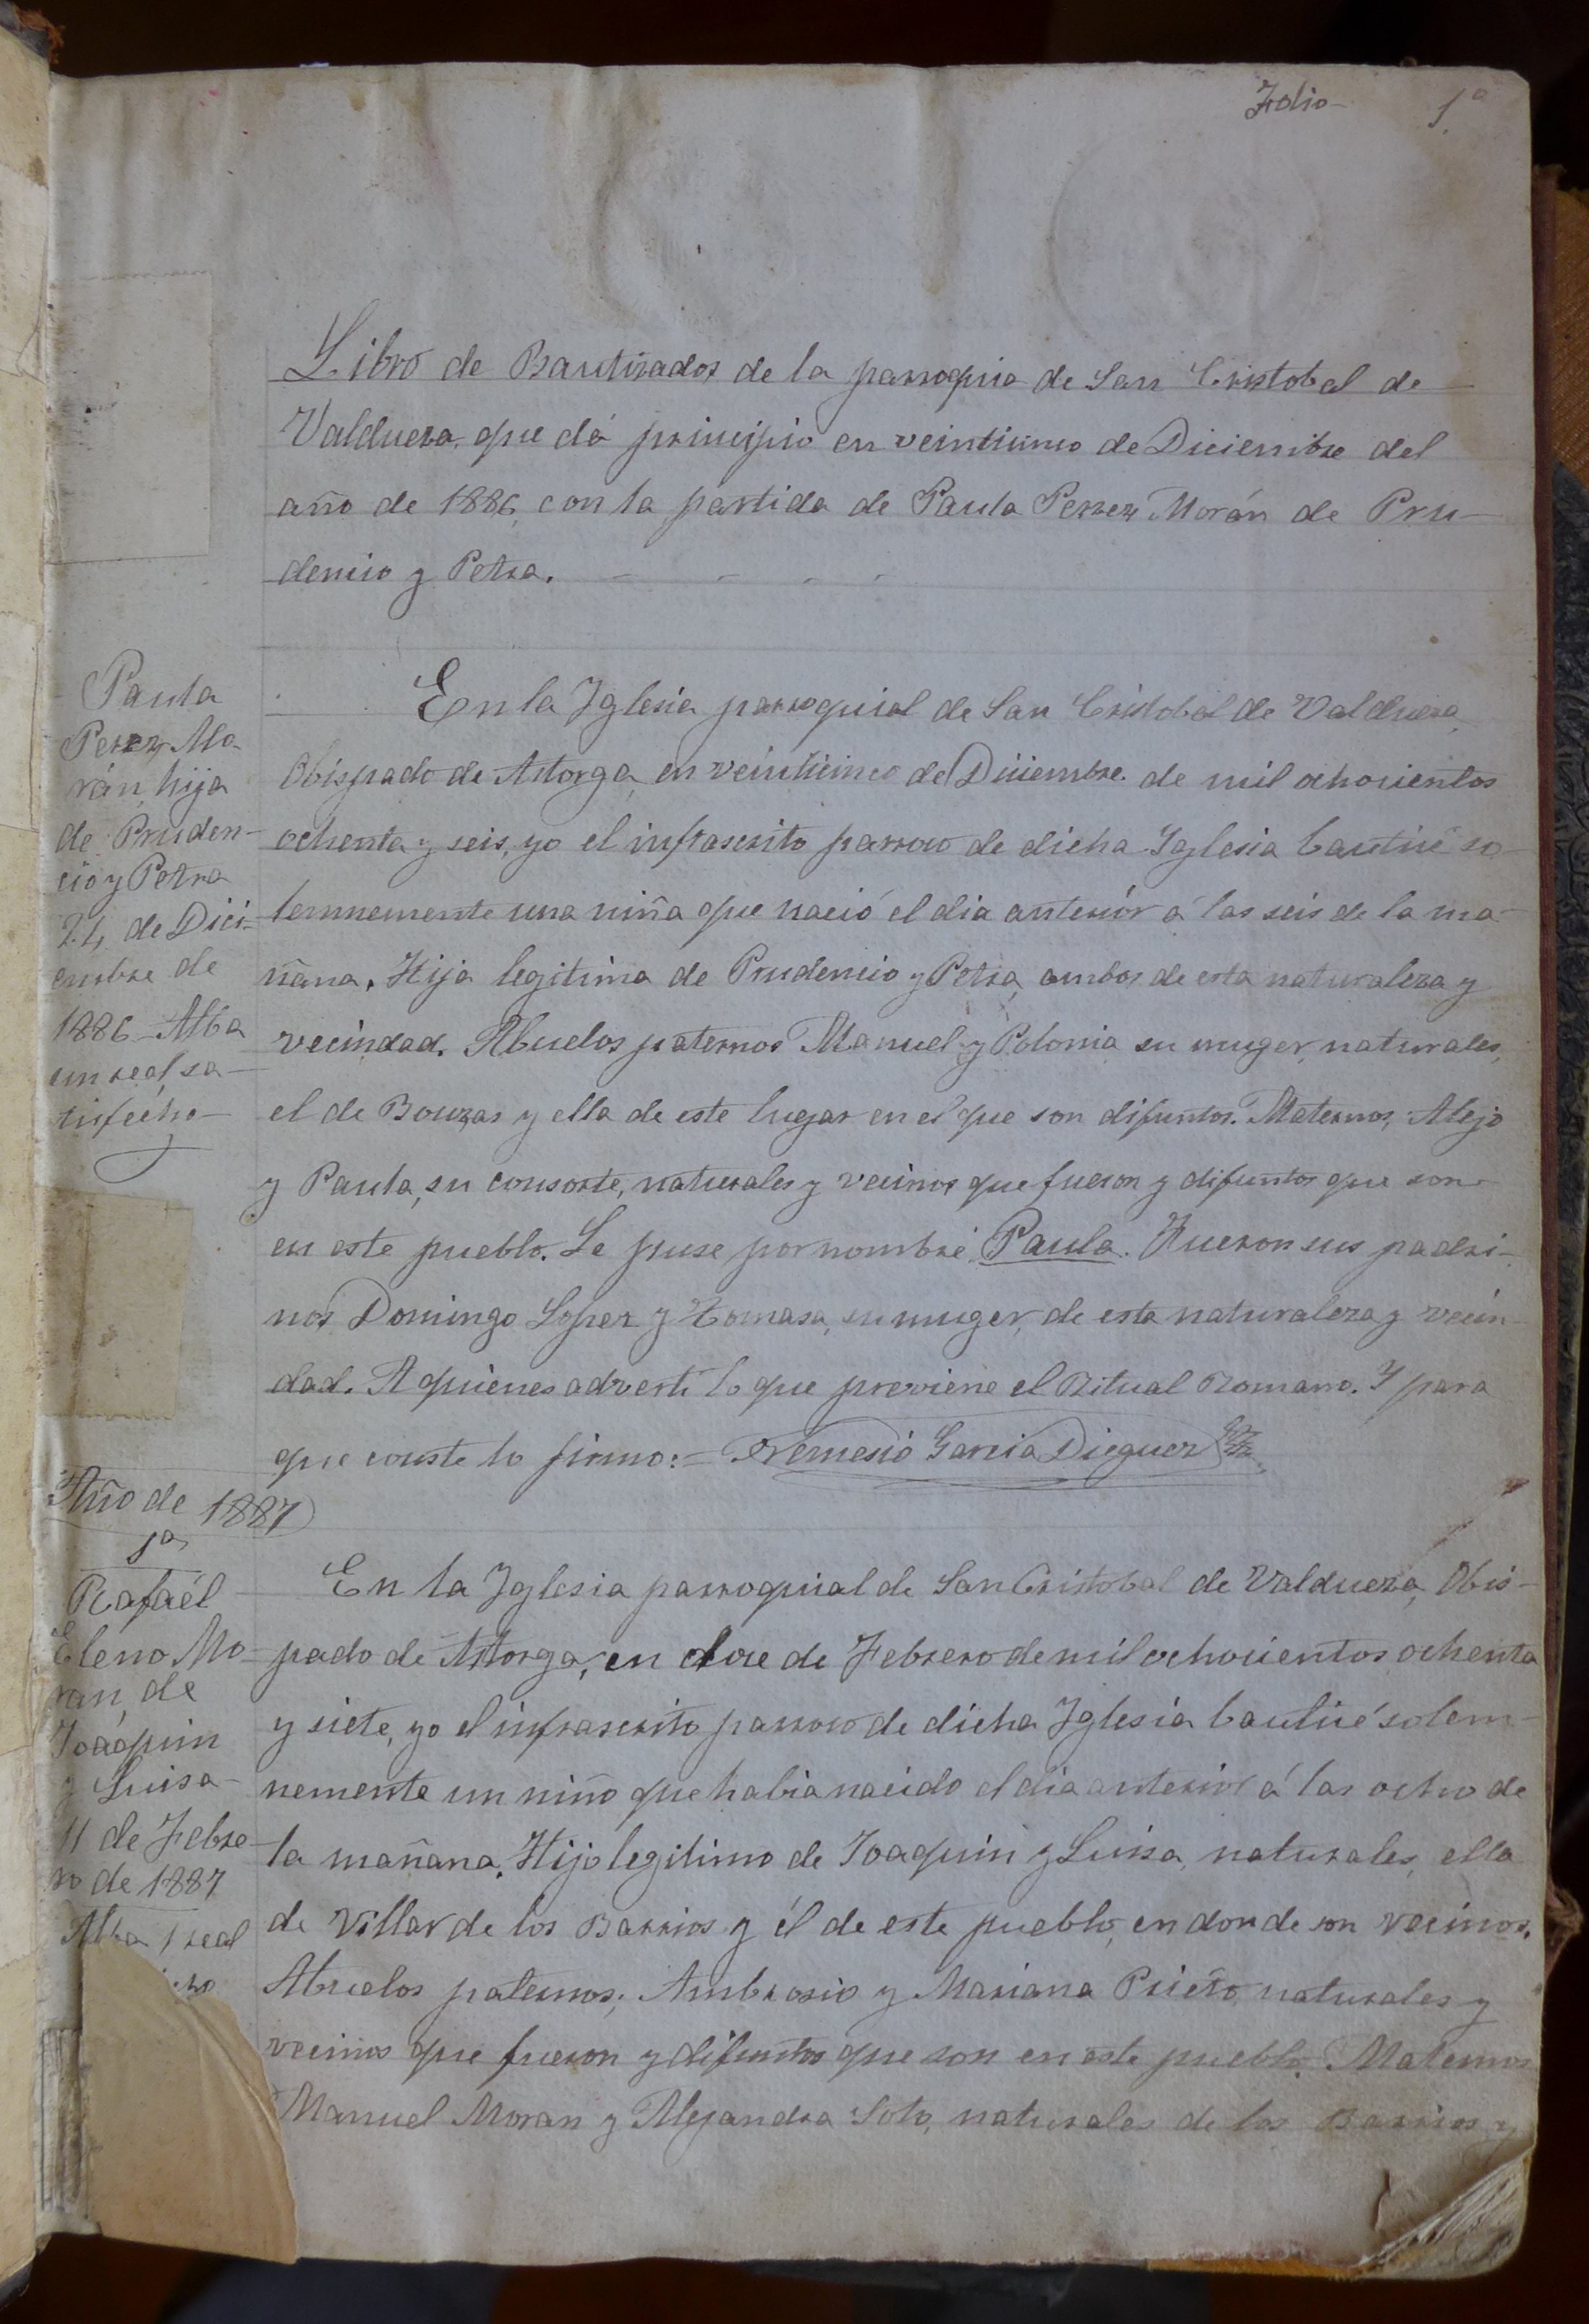 Folio 1º
Libro de Bautizados de la parroquia de San Cristobal de
Valdueza, que dá principio en veinticinco de Diciembre del
año de 1886, con la partida de Paula Perez Morán de Pru-
dencio y Petra.
Paula
Perez Mo-
rán, hija
de Pruden-
cio y Petra
24, de Dici-
embre de
1886 - Alba
un real, sa-
tisfecho -
En la Iglesia parroquial de San Cristobal de Valdueza,
Obispado de Astorga, en veinticinco de Diciembre de mil ochocientos
ochenta y seis, yo el infrascrito parroco de dicha Iglesia bauticé so-
lemnemente una niña que nació el dia anteriór á las seis de la ma-
ñana. Hija legitima de Prudencio y Petra, ambos de esta naturaleza y
vecindad. Abuelos paternos Manuel y Polonia su muger, naturales,
el de Bouzas y ella de este lugar en el que son difuntos. Maternos, Alejo
y Paula, su consorte, naturales y vecinos que fueron y difuntos que son
en este pueblo. Le puse por nombre Paula. Fueron sus padri-
nos Domingo Lopez y Tomasa, su muger, de esta naturaleza y vecin-
dad. A quienes adverti lo que previene el Ritual Romano. Y para
que conste lo firmo:= Nemesio Garcia Dieguez
Año de 1887
1ª
Rafaél
Eleno Mo-
ran, de
Joaquin
y Luisa -
11 de Febre-
ro de 1887
Alba 1 real
En la Iglesia parroquial de San Cristobal de Valdueza, Obis-
pado de Astorga, en doce de Febrero de mil ochocientos ochenta
y siete, yo el infrascrito parroco de dicha Iglesia bauticé solem-
nemente un niño que habia nacido el dia anterior á las ocho de
la mañana. Hijo legitimo de Joaquin y Luisa, naturales, ella
de Villar de los Barrios y él de este pueblo, en donde son vecinos.
Abuelos paternos; Ambrosio y Mariana Prieto, naturales y
vecinos que fueron y difuntos que son en este pueblo. Maternos
Manuel Moran y Alejandra Soto, naturales de los Barrios y